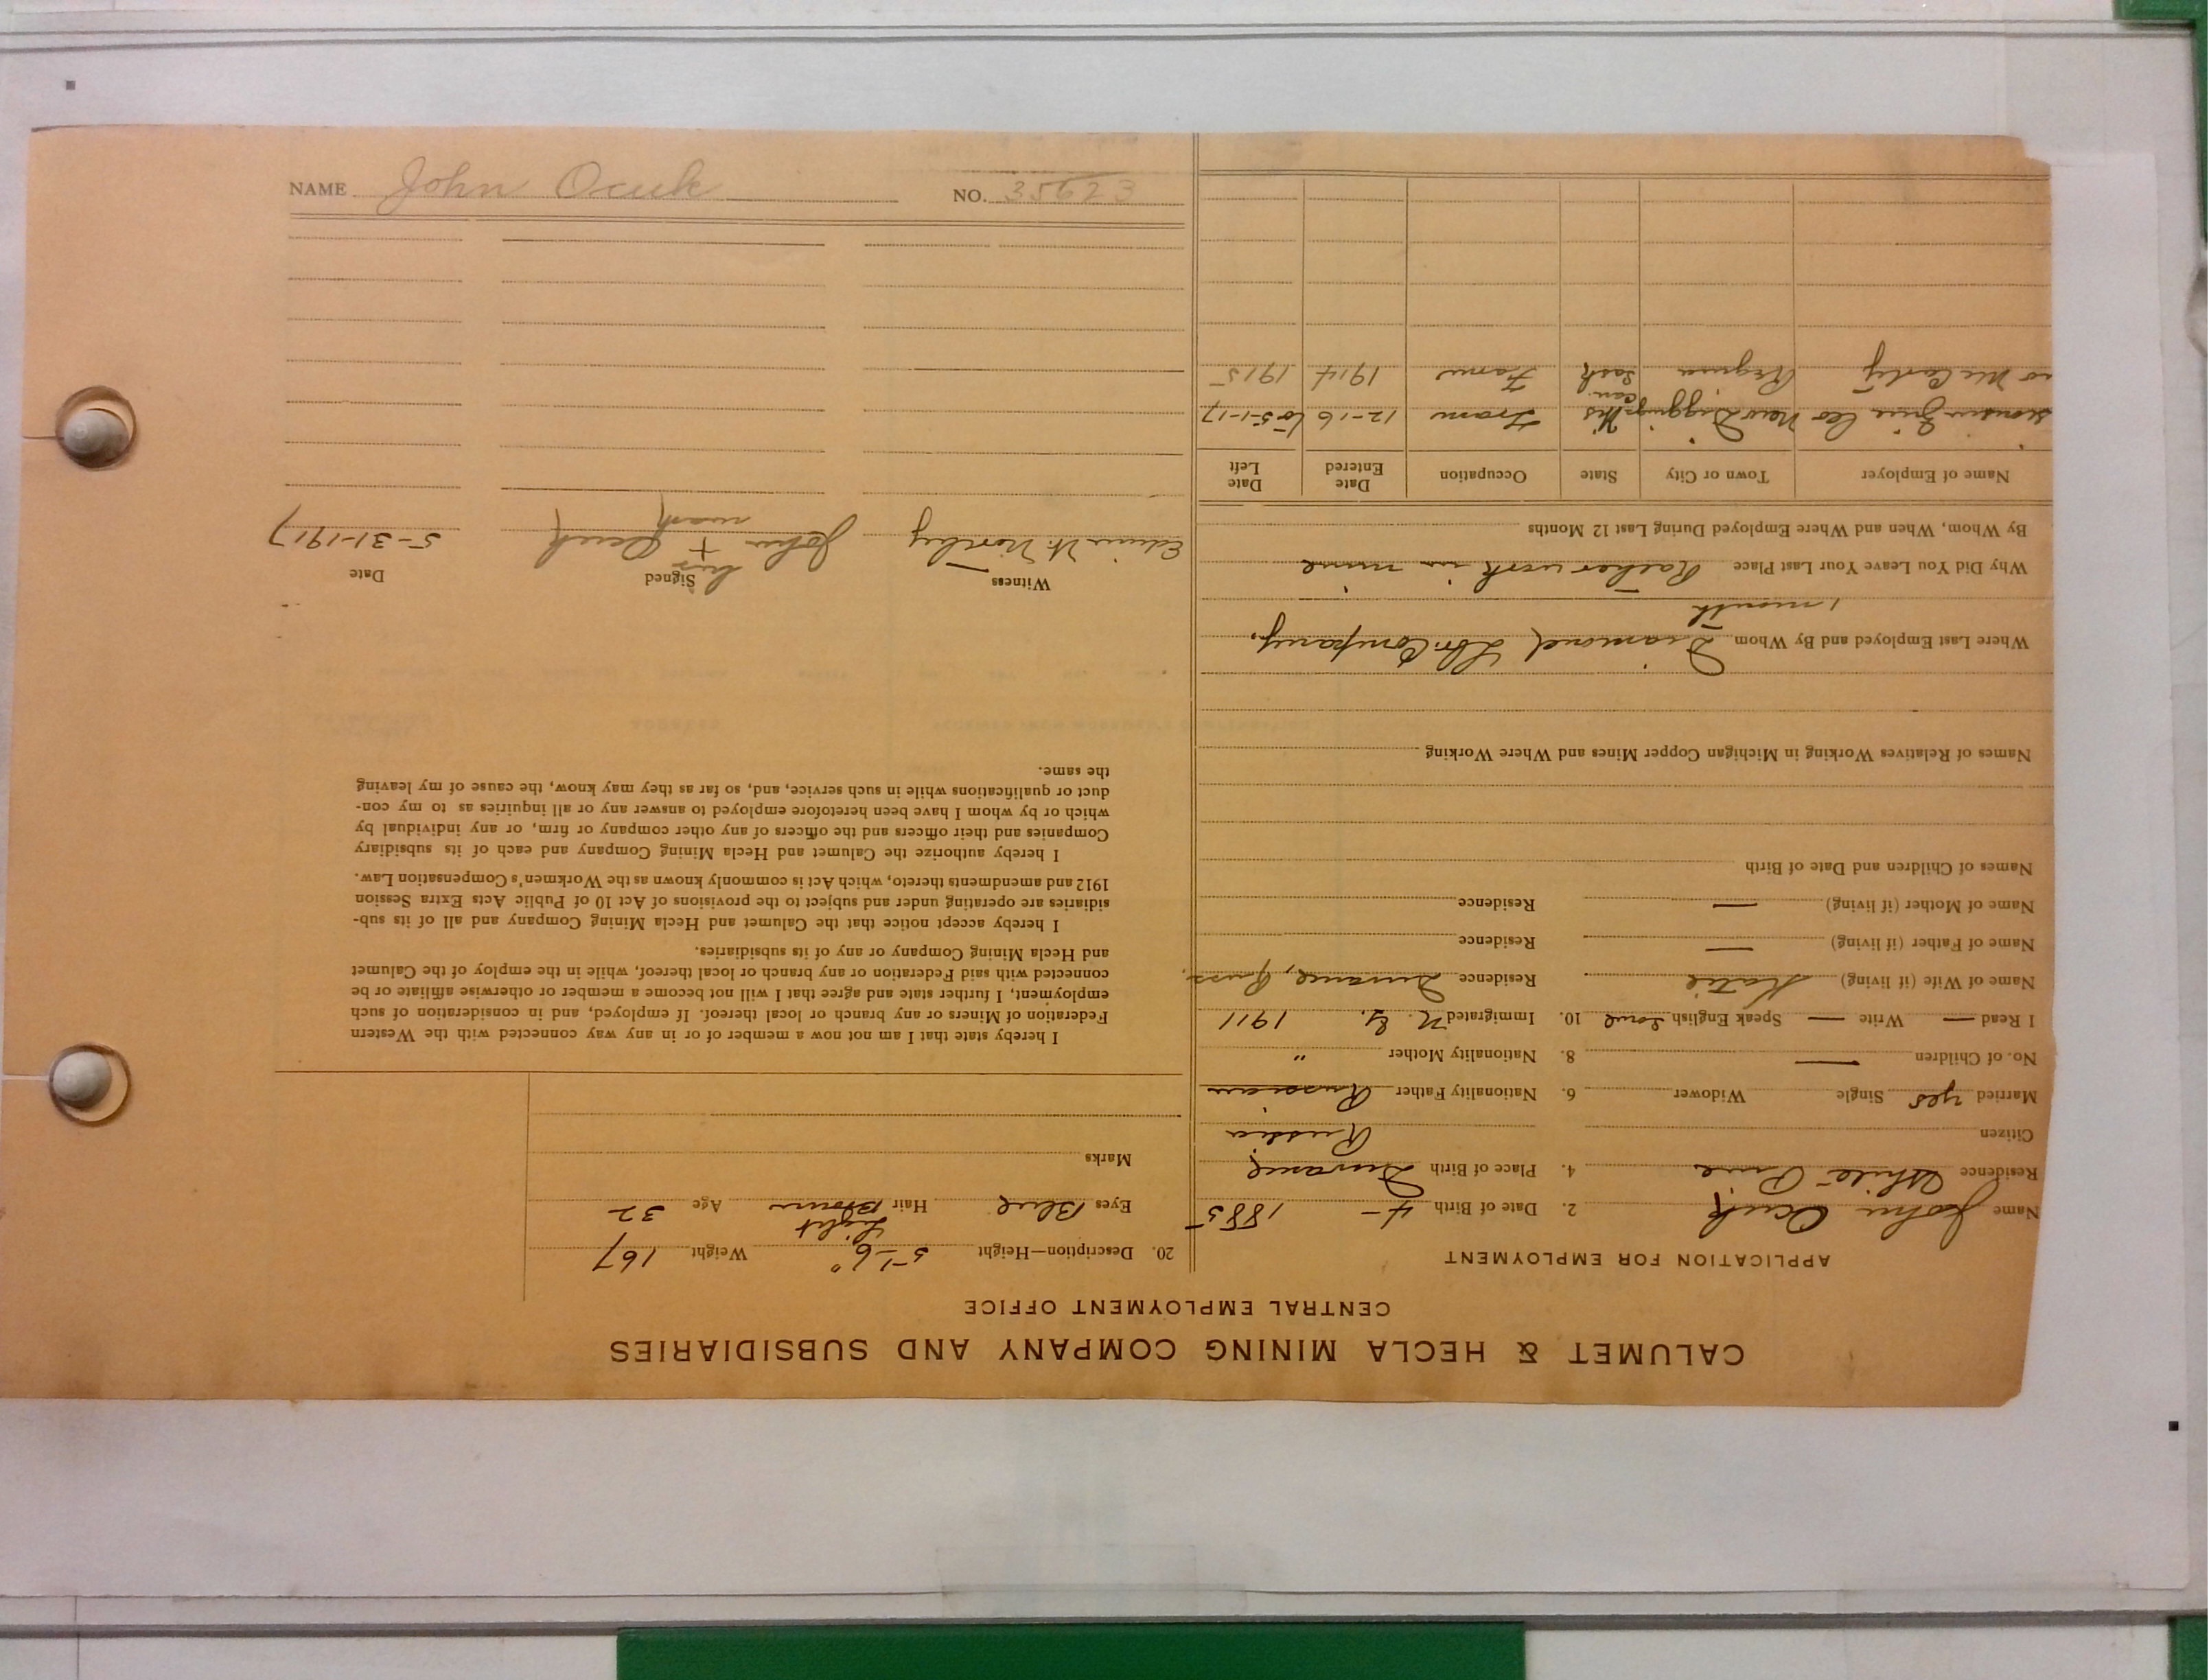 CALUMET & HECLA MINING COMPANY AND SUBSIDIARIES
CENTRAL EMPLOYMENT OFFICE
APPLICATION FOR EMPLOYMENT
Name John Ocuk 2. Date of Birth 4 - 1885
Residence White Pine 4. Place of Birth
Citizen Russia
Married yes Single Widower 6. Nationality Father Russian
No. of Children — 8. Nationality Mother "
I Read — Write — Speak English some 10. Immigrated N. Y. 1911
Name of Wife (if living) Katie Residence Russ.
Name of Father (if living) — Residence
Name of Mother (if living) — Residence
Names of Children and Date of Birth
Names of Relatives Working in Michigan Copper Mines and Where Working
Where Last Employed and By Whom Diamond Lbr. Company,
1 month
Why Did You Leave Your Last Place Rather work in mine
By Whom, When and Where Employed During Last 12 Months
Name of Employer Town or City State Occupation Date Entered Date Left
Zinc Co New Diggings Wis Tram 12-16 to 5-1-17
Can.
McCarty Regina Sask Farm 1914 1915
20. Description—Height 5-6" Weight 167
Light
Eyes Blue Hair Brown Age 32
Marks
I hereby state that I am not now a member of or in any way connected with the Western
Federation of Miners or any branch or local thereof. If employed, and in consideration of such
employment, I further state and agree that I will not become a member or otherwise affiliate or be
connected with said Federation or any branch or local thereof, while in the employ of the Calumet
and Hecla Mining Company or any of its subsidiaries.
I hereby accept notice that the Calumet and Hecla Mining Company and all of its sub-
sidiaries are operating under and subject to the provisions of Act 10 of Public Acts Extra Session
1912 and amendments thereto, which Act is commonly known as the Workmen's Compensation Law.
I hereby authorize the Calumet and Hecla Mining Company and each of its subsidiary
Companies and their officers and the officers of any other company or firm, or any individual by
which or by whom I have been heretofore employed to answer any or all inquiries as to my con-
duct or qualifications while in such service, and, so far as they may know, the cause of my leaving
the same.
Witness Signed Date
his
Edwin W. John + Ocuk 5-31-1917
mark
NAME John Ocuk NO. 35623